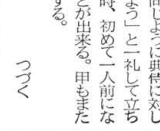 同じように典侍に対し
よう」と一礼して立ち
時、初めて一人前にな
とが出来る。甲もまた
する。
つづく